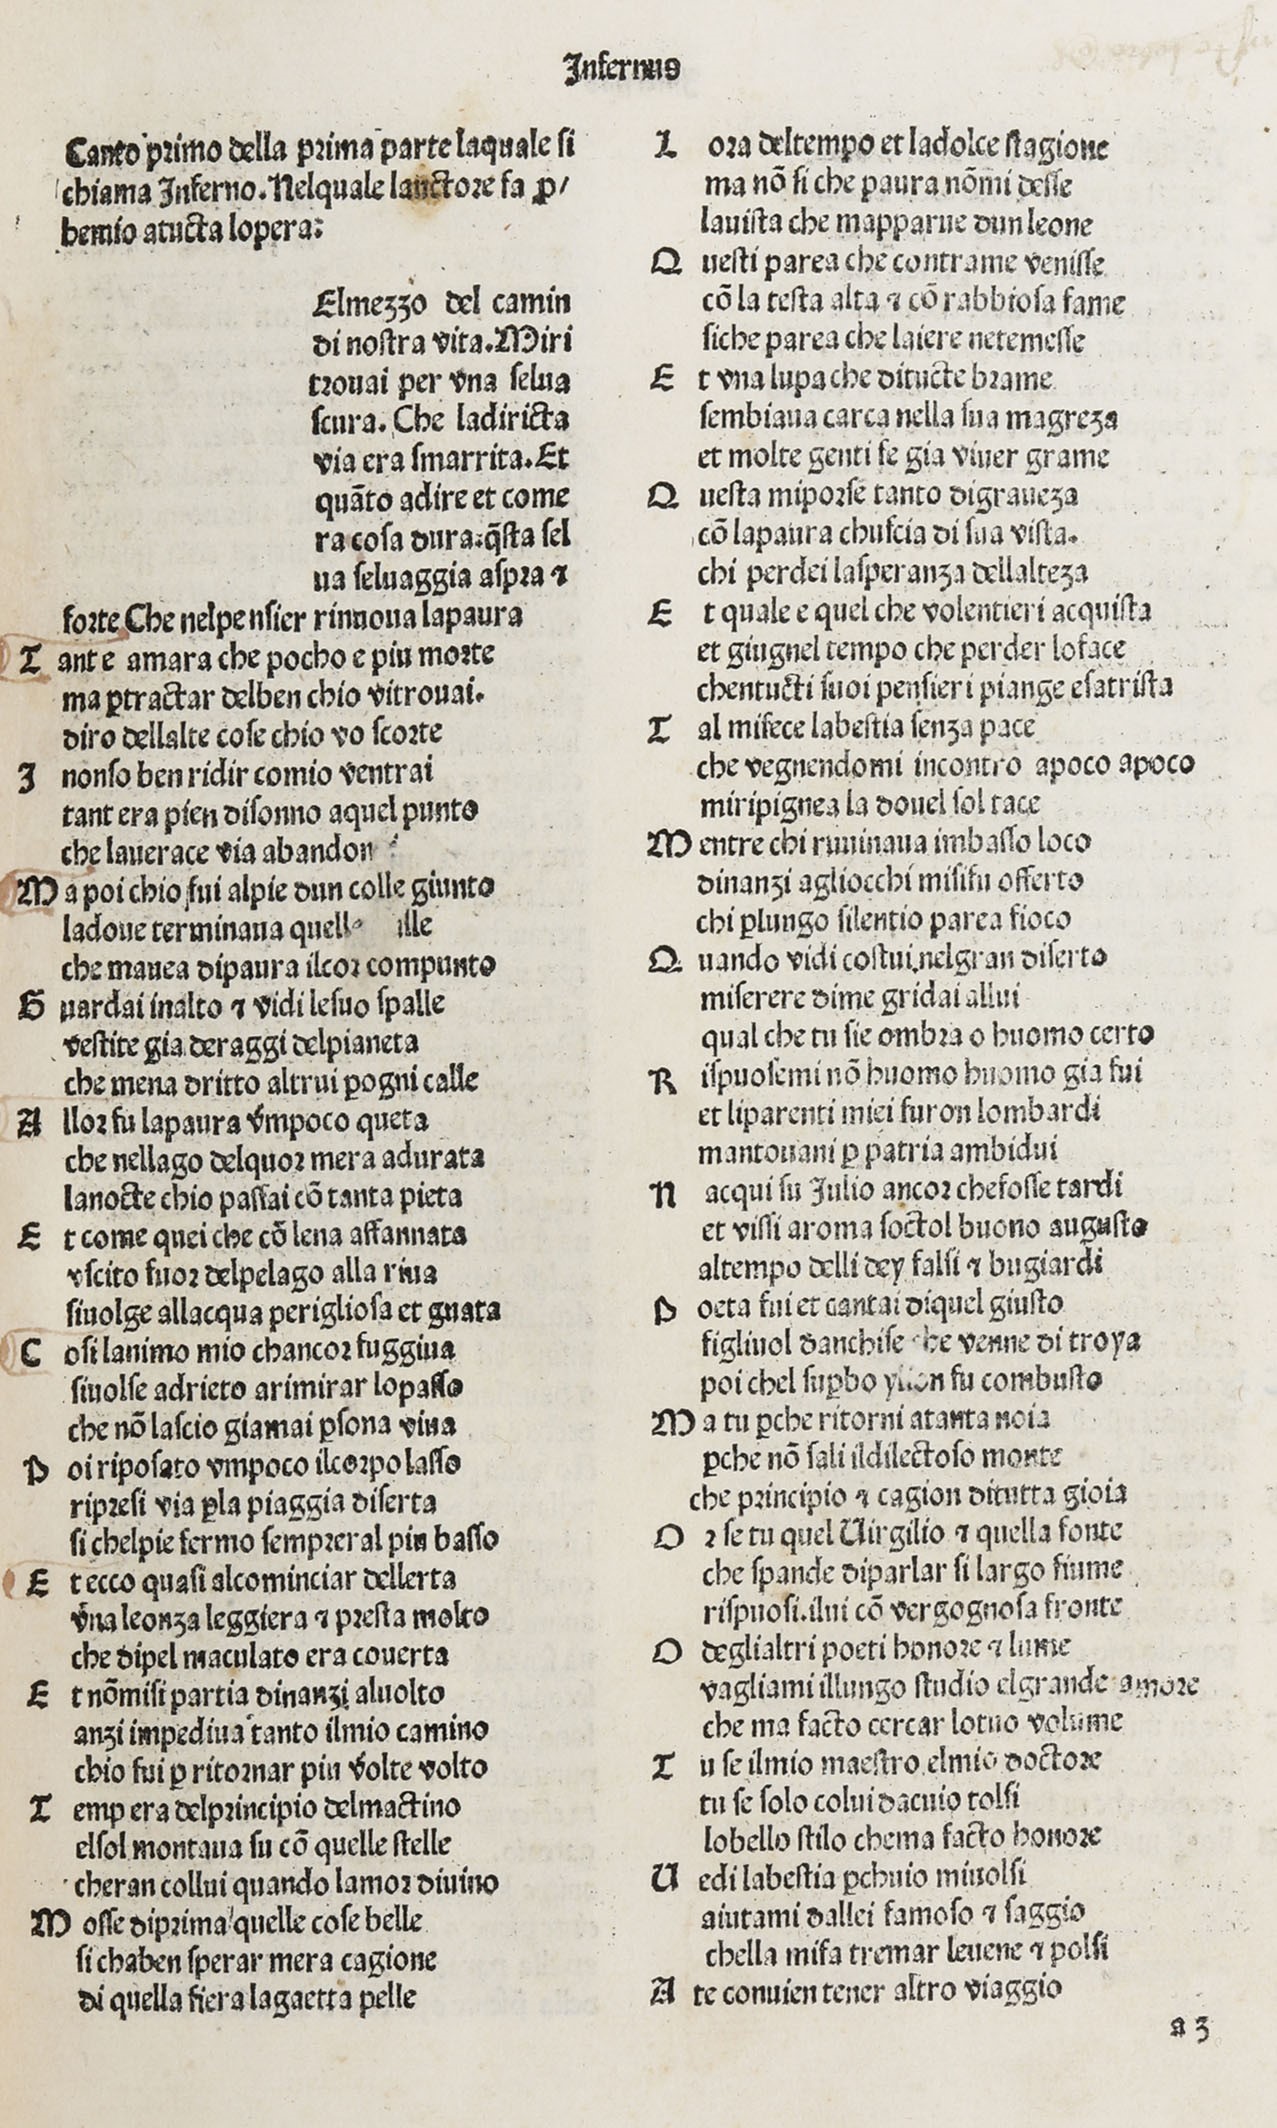 Infernus
Canto primo della prima parte laquale si
chiama Inferno. Nelquale lauctore fa ꝓ/
hemio atucta lopera:
Elmezzo del camin
di nostra vita. Miri
trouai per vna selua
scura. Che ladiricta
via era smarrita. Et
quāto adire et come
ra cosa dura: q̄sta sel
ua seluaggia aspra ⁊
forte Che nelpensier rinnoua lapaura
T ante amara che pocho e piu morte
ma ꝑtractar delben chio vitrouai.
diro dellalte cose chio vo scorte
I nonso ben ridir comio ventrai
tant era pien disonno aquel punto
che lauerace via abandon
M a poi chio fui alpie dun colle giunto
ladoue terminaua quell ille
che mauea dipaura ilcor compunto
G uardai inalto ⁊ vidi lesuo spalle
vestite gia deraggi delpianeta
che mena dritto altrui ꝑogni calle
A llor fu lapaura vmpoco queta
che nellago delquor mera adurata
lanocte chio passai cō tanta pieta
E t come quei che cō lena affannata
vscito fuor delpelago alla riua
siuolge allacqua perigliosa et guata
C osi lanimo mio chancor fuggiua
siuolse adrieto arimirar lopasso
che nō lascio giamai ꝑsona viua
P oi riposato vmpoco ilcorpo lasso
ripresi via ꝑla piaggia diserta
si chelpie fermo sempreral piu basso
E t ecco quasi alcominciar dellerta
vna leonza leggiera ⁊ presta molto
che dipel maculato era couerta
E t nōmisi partia dinanzi aluolto
anzi impediua tanto ilmio camino
chio fui ꝑ ritornar piu volte volto
T emp era delprincipio delmactino
elsol montaua su cō quelle stelle
cheran collui quando lamor diuino
M osse diprima quelle cose belle
si chaben sperar mera cagione
di quella fiera lagaetta pelle
L ora deltempo et ladolce stagione
ma nō si che paura nōmi desse
lauista che mapparue dun leone
Q uesti parea che contrame venisse
cō la testa alta ⁊ cō rabbiosa fame
siche parea che laiere netemesse
E t vna lupa che ditucte brame
sembiaua carca nella sua magreza
et molte genti fe gia viuer grame
Q uesta miporse tanto digraueza
cō lapaura chuscia di sua vista.
chi perdei lasperanza dellalteza
E t quale e quel che volentieri acquista
et giugnel tempo che perder loface
chentucti suoi pensieri piange esatrista
T al mifece labestia senza pace
che vegnendomi incontro apoco apoco
miripignea la douel sol tace
M entre chi ruuinaua imbasso loco
dinanzi agliocchi misifu offerto
chi ꝑlungo silentio parea fioco
Q uando vidi costui nelgran diserto
miserere dime gridai allui
qual che tu sie ombra o huomo certo
R ispuosemi nō huomo huomo gia fui
et liparenti miei furon lombardi
mantouani ꝑ patria ambidui
N acqui su Julio ancor chefosse tardi
et vissi aroma soctol buono augusto
altempo delli dey falsi ⁊ bugiardi
P oeta fui et cantai diquel giusto
figliuol danchise che venne di troya
poi chel suꝑbo ylion fu combusto
M a tu ꝑche ritorni atanta noia
ꝑche nō sali ildilectoso monte
che principio ⁊ cagion ditutta gioia
O r se tu quel Uirgilio ⁊ quella fonte
che spande diparlar si largo fiume
rispuosi.ilui cō vergognosa fronte
O deglialtri poeti honore ⁊ lume
vagliami illungo studio elgrande amore
che ma facto cercar lotuo volume
T u se ilmio maestro elmio doctore
tu se solo colui dacuio tolsi
lobello stilo chema facto honore
U edi labestia ꝑchuio miuolsi
aiutami dallei famoso ⁊ saggio
chella mifa tremar leuene ⁊ polsi
A te conuien tener altro viaggio
a 3